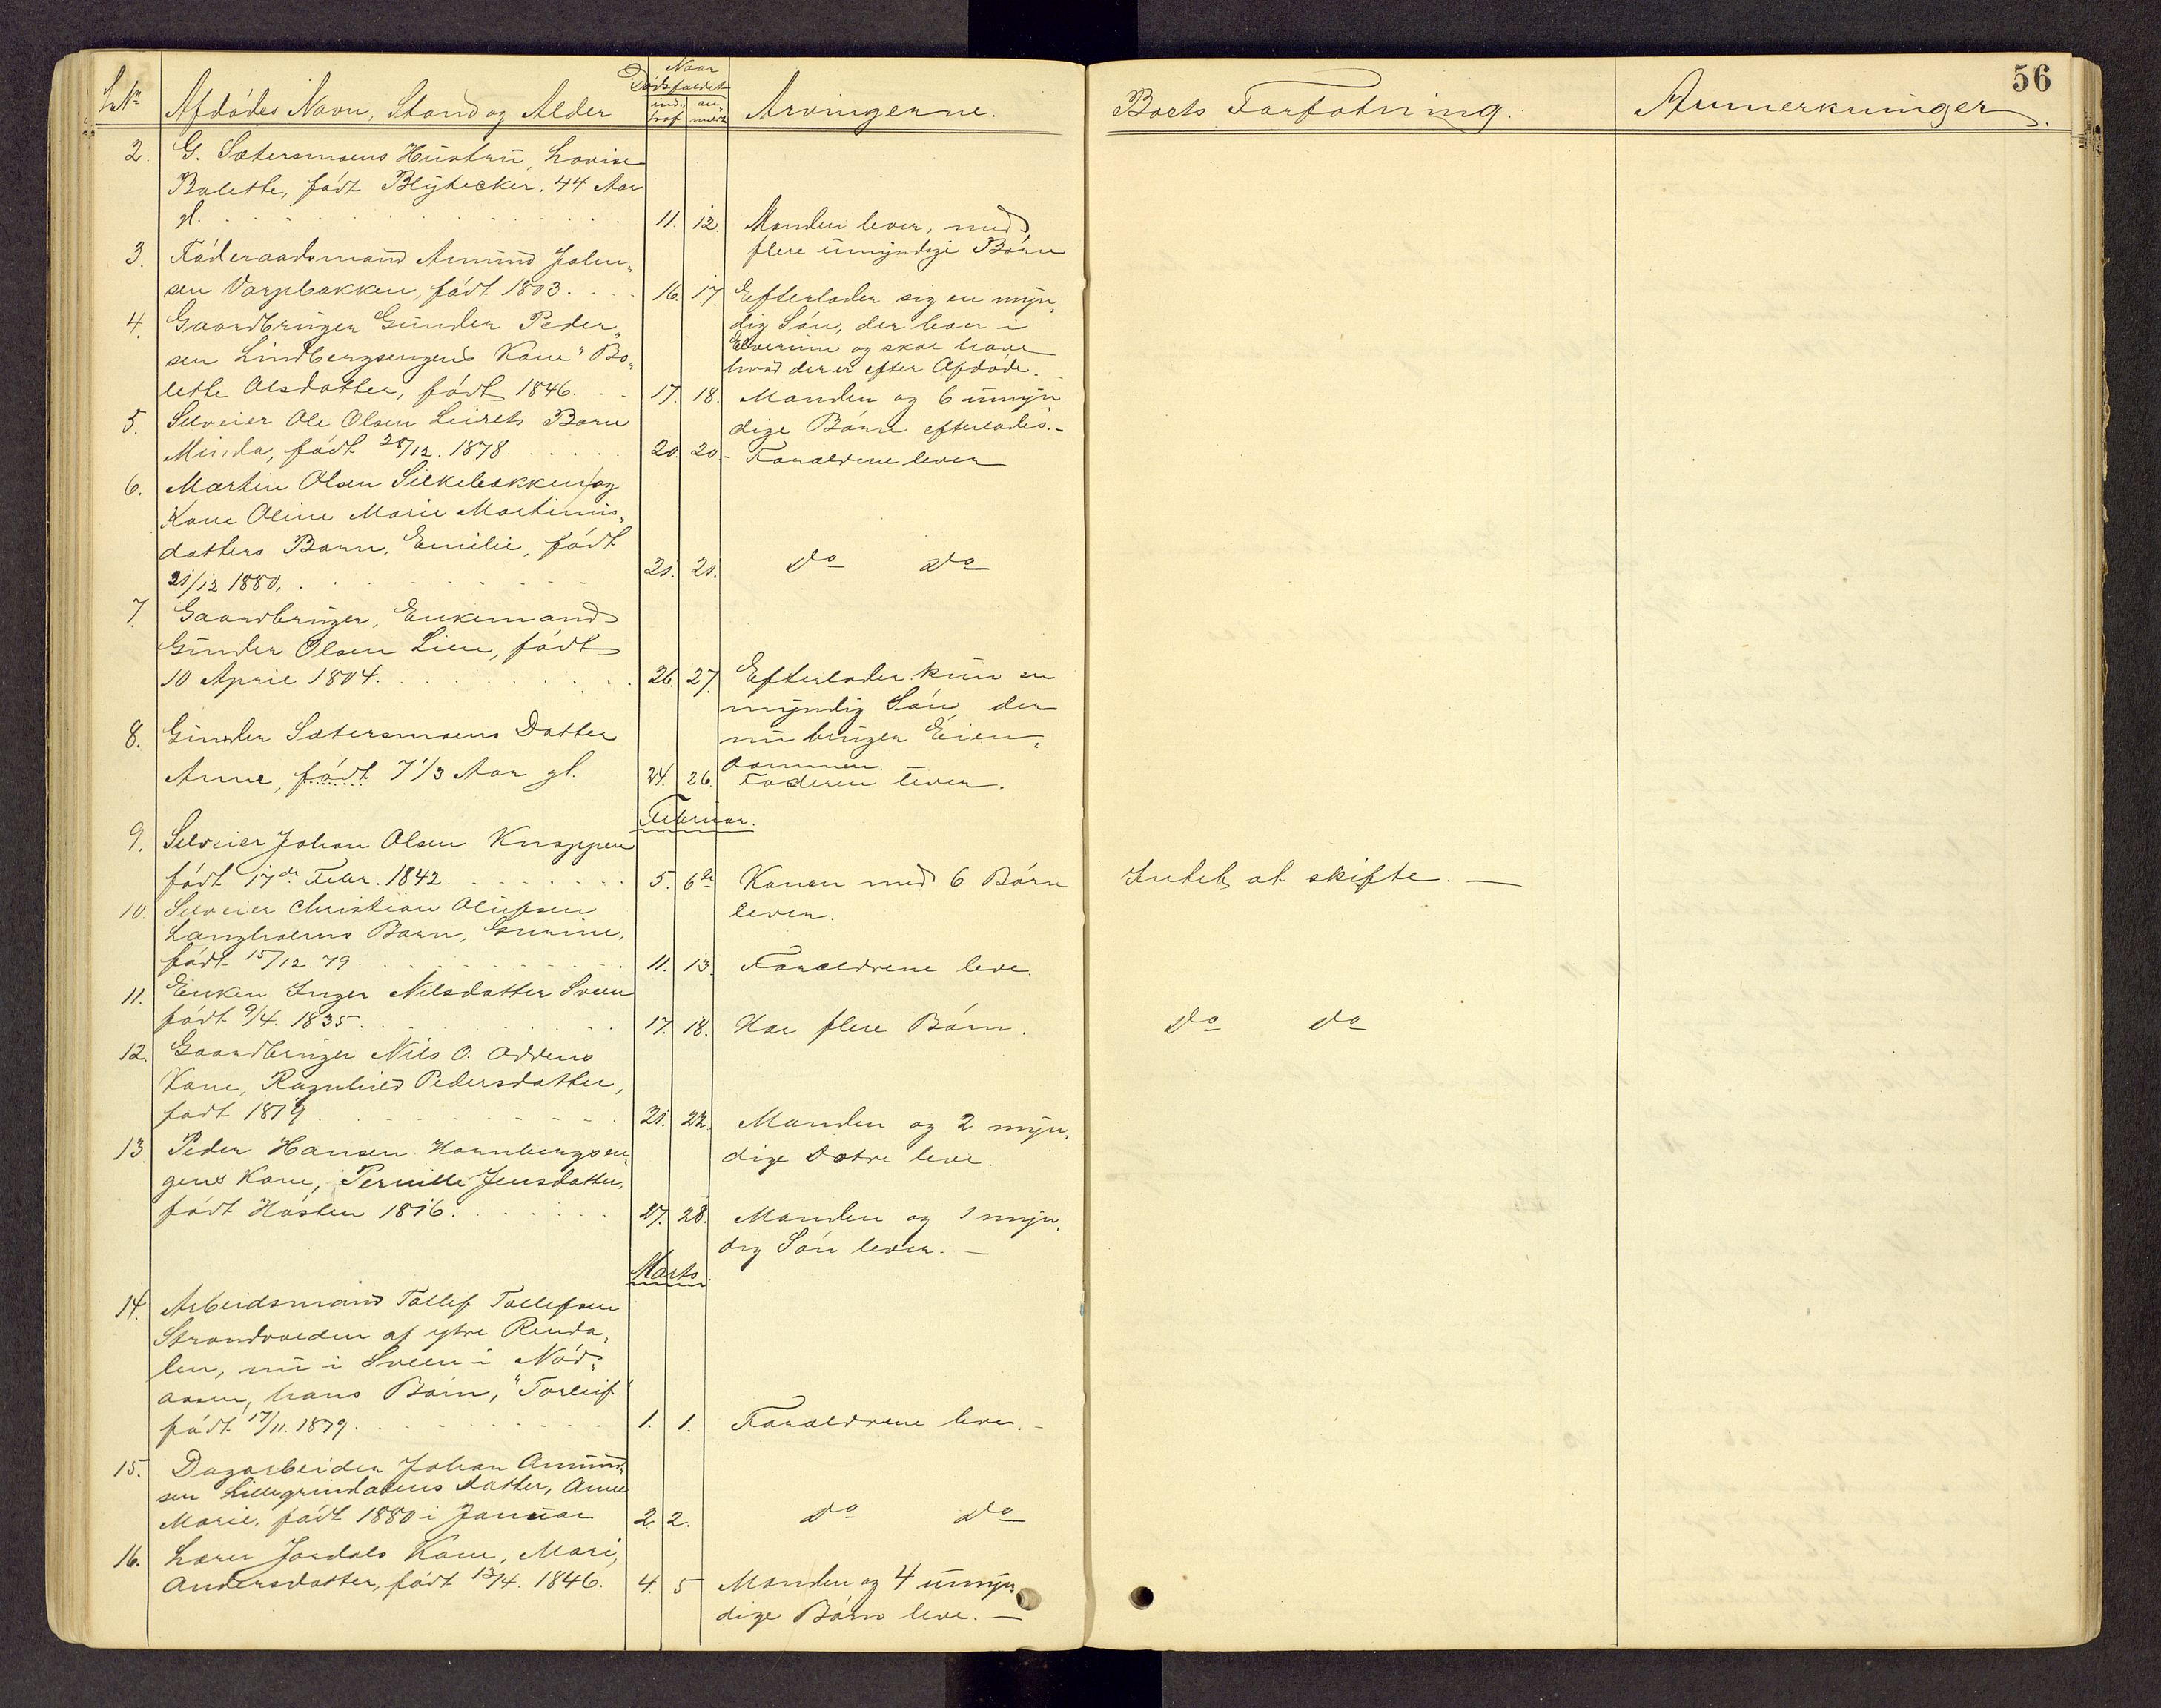 56
Naar
Dödsfaldet
L.No Afdödes Navn, Stand og Alder indtraf anmeldt Arvingerne. Boets Forfatning. Anmerkninger.
2. G. Sætersmoens Hustru, Lovise
Bolette, født Blytecker. 44 Aar
gl. 11. 12. Manden lever, med
flere umyndige Børn
3. Føderaadsmand Amund John-
sen Vorpbakken, født 1803. 16. 17. Efterlader sig en myn-
dig Søn, der boer i
Elverum og skal have
hvad der er efter Afdøde.
4. Gaardbruger Gunder Peder-
sen Lindbergsengens Kone "Bo-
lette Olsdatter, født 1846. 17. 18. Manden og 6 umyn
dige Børn efterlades.-
5. Selveier Ole Olsen Leirets Barn
Minda, født 28/12. 1878. 20. 20.- Forældrene lever
6. Martin Olsen Silkebakken og
Kone Oline Marie Martinus-
datters Barn, Emilie, født
21/12 1880. 21. 21. Do Do
7. Gaardbruger, Enkemand
Gunder Olsen Lien, født
10 April 1804. 26. 27. Efterlader kun en
myndig Søn, der
nu bruger Eien-
dommen.
8. Gunder Sætersmoens Datter
Anne, født 7 1/3 Aar gl. 24. 26. Faderen lever.
Februar.
9. Selveier Johan Olsen Knappen
født 17de Febr. 1842. 5. 6te Konen med 6 Børn Intet at skifte. —
lever.
10. Selveier Christian Olufsen
Langholms Barn, Gunine,
født 15/12. 79. 11. 13. Forældrene leve.
11. Enken Inger Nilsdatter Sveen
født 9/4. 1835. 17. 18. Har flere Børn. Do Do
12. Gaardbruger Nils O. Oddens
Kone, Ragnhild Pedersdatter,
født 1819. 21. 22. Manden og 2 myn-
dige Døtre leve.
13. Peder Hansen Hornbergsen-
gens Kone, Pernille Jensdatter,
født Høsten 1816. 27. 28. Manden og 1 myn-
dig Søn lever. —
Marts.
14. Arbeidsmand Tollef Tollefsen
Strandvolden af ytre Renda-
len, nu i Sveen i Nød-
aasen, hans Barn, "Torleif"
født 17/11. 1879. 1. 1. Forældrene leve.-
15. Dagarbeider Johan Amund-
sen Lillegrindalens Datter, Anne
Marie, født 1880 i Januar 2. 2. Do Do
16. Lærer Jordals Kone, Mari,
Andersdatter, født 13/4. 1846. 4. 5 Manden og 4 umyn-
dige Børn leve. —